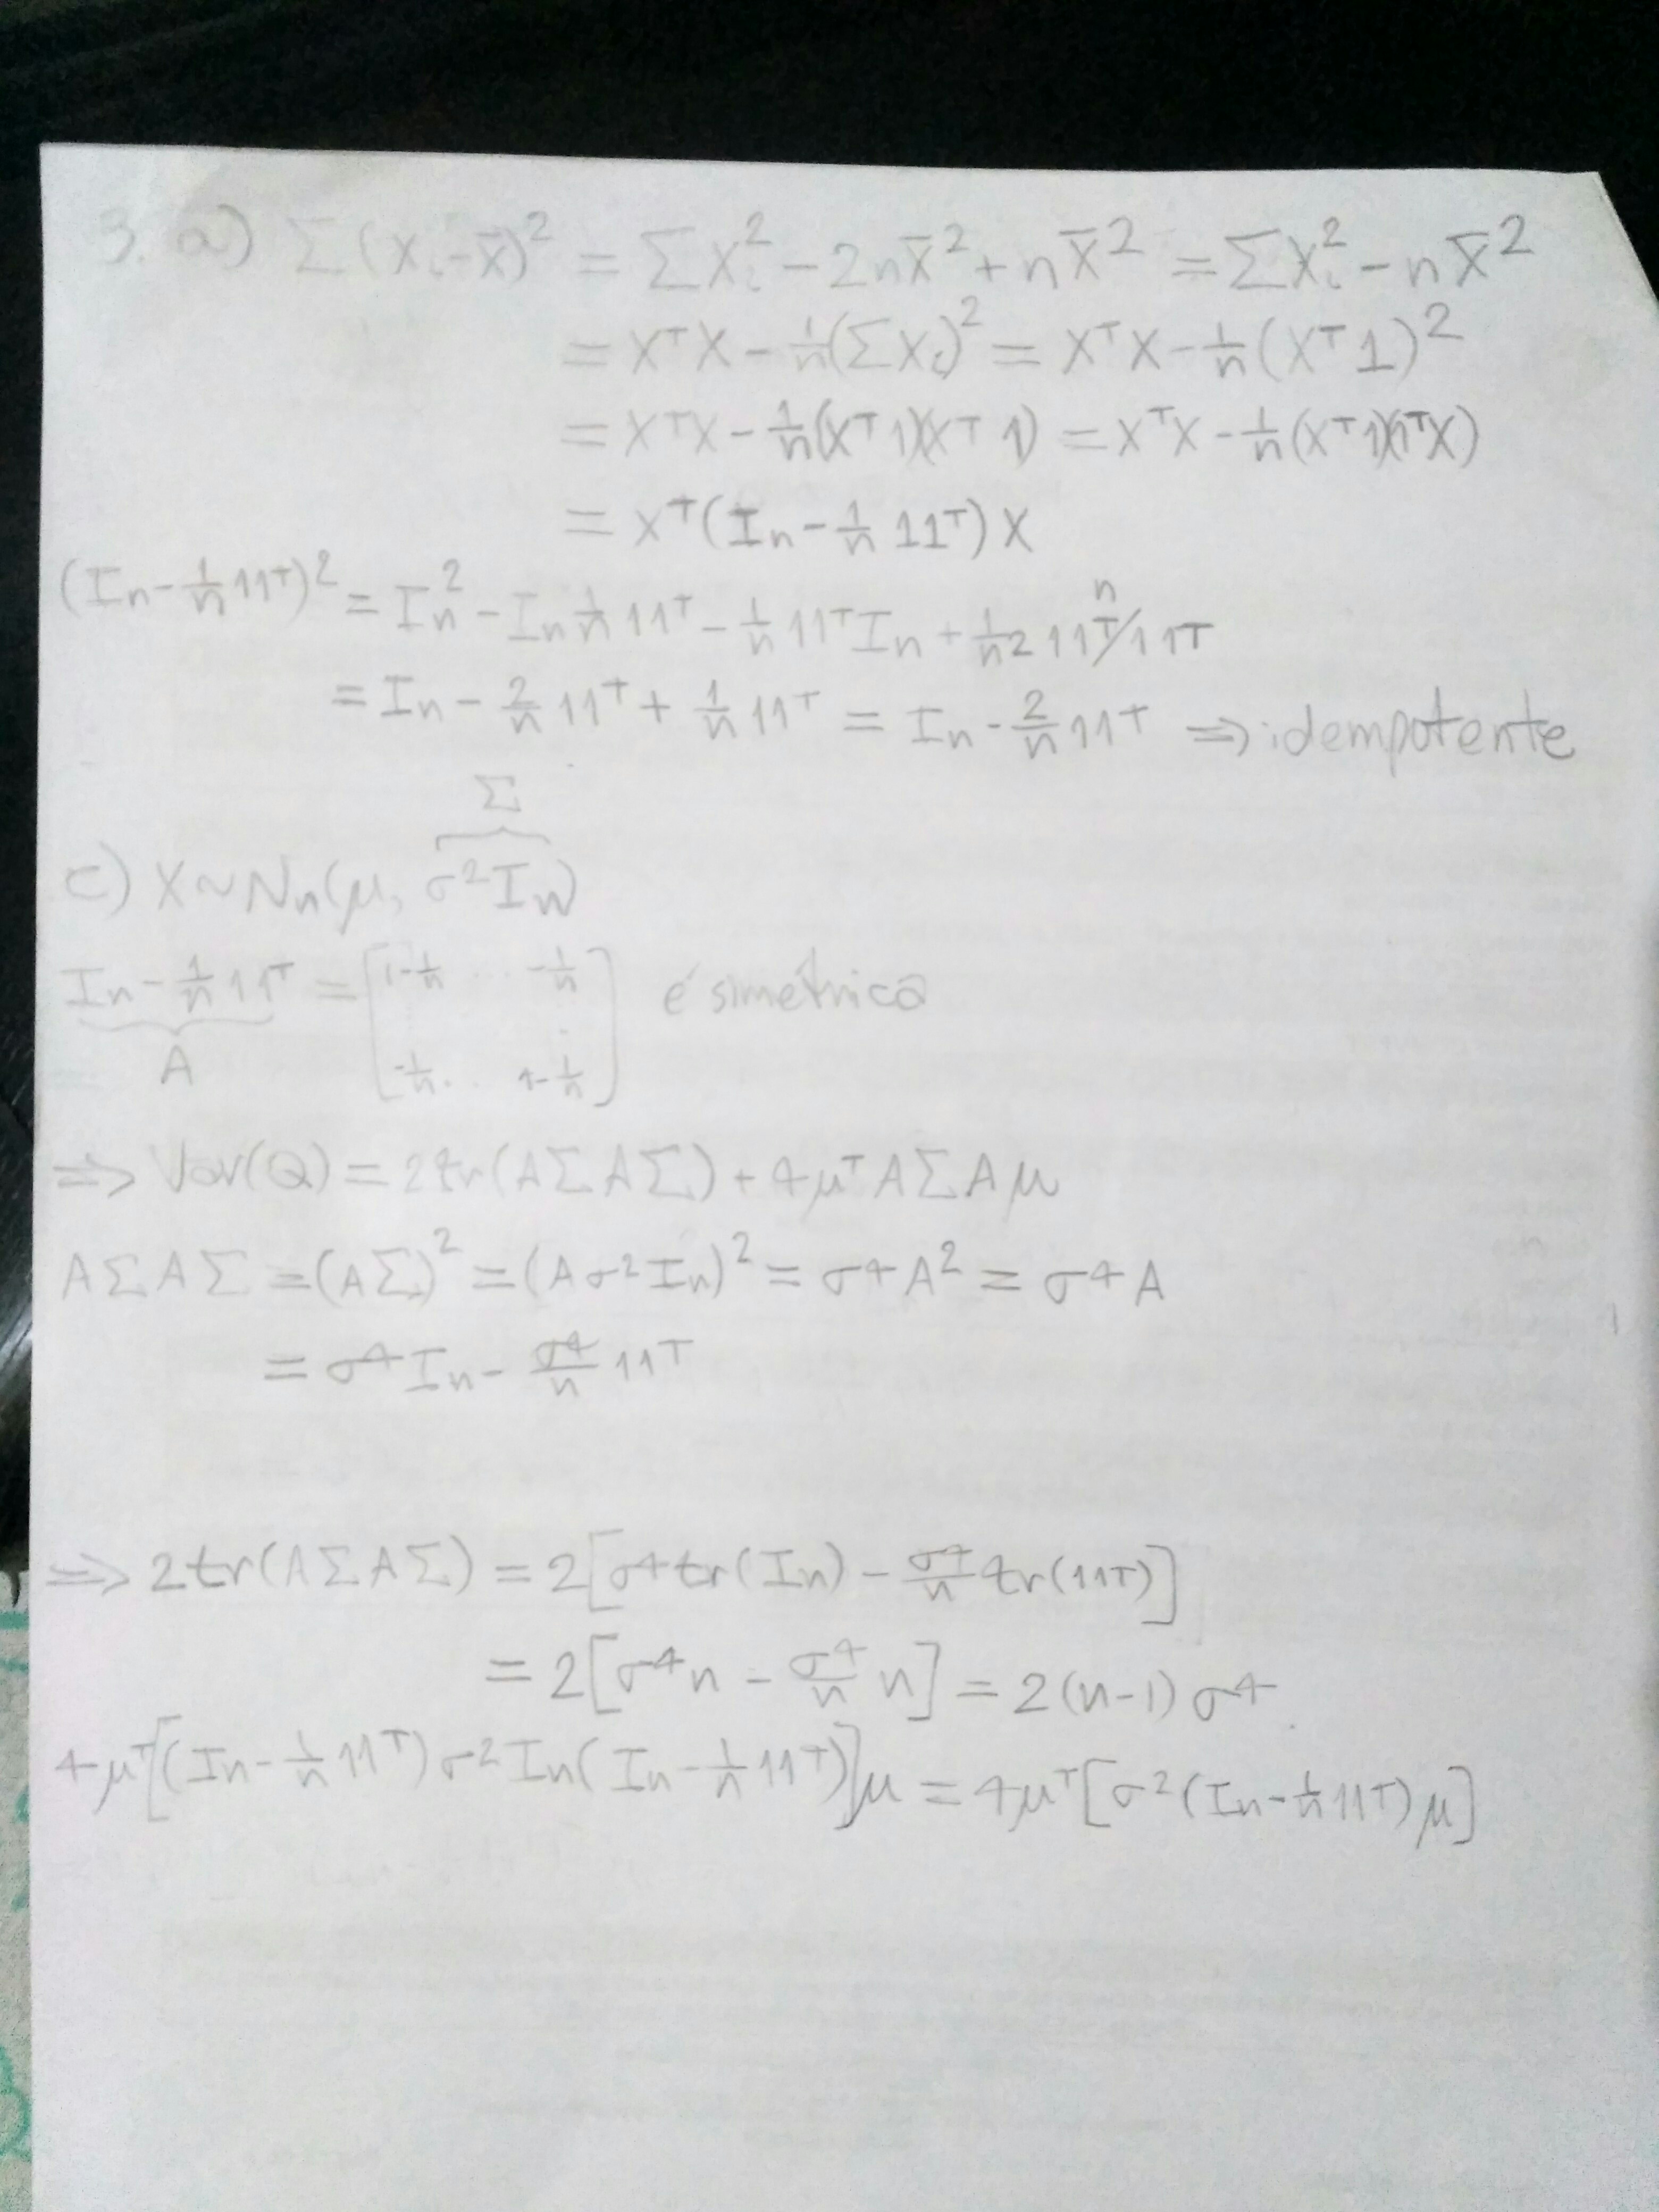 3. a) Σ(Xᵢ-X̄)² = ΣXᵢ² - 2nX̄² + nX̄² = ΣXᵢ² - nX̄²
= XᵀX - 1/n(ΣXᵢ)² = XᵀX - 1/n(Xᵀ1)²
= XᵀX - 1/n(Xᵀ1)(Xᵀ1) = XᵀX - 1/n(Xᵀ1)(1ᵀX)
= Xᵀ(In - 1/n 11ᵀ)X
(In - 1/n 11ᵀ)² = In² - In 1/n 11ᵀ - 1/n 11ᵀIn + 1/n² 11ᵀ11ᵀ
n
= In - 2/n 11ᵀ + 1/n 11ᵀ = In - 2/n 11ᵀ ⇒ idempotente
Σ
c) X~Nn(μ, σ²In)
In - 1/n 11ᵀ = [1-1/n ... -1/n
-1/n ... 1-1/n] é simétrica
A
⇒ Var(Q) = 2tr(AΣAΣ) + 4μᵀAΣAμ
AΣAΣ = (AΣ)² = (Aσ²In)² = σ⁴A² = σ⁴A
= σ⁴In - σ⁴/n 11ᵀ
⇒ 2tr(AΣAΣ) = 2[σ⁴tr(In) - σ⁴/n tr(11ᵀ)]
= 2[σ⁴n - σ⁴/n n] = 2(n-1)σ⁴
4μᵀ[(In - 1/n 11ᵀ)σ²In(In - 1/n 11ᵀ)]μ = 4μᵀ[σ²(In - 1/n 11ᵀ)μ]